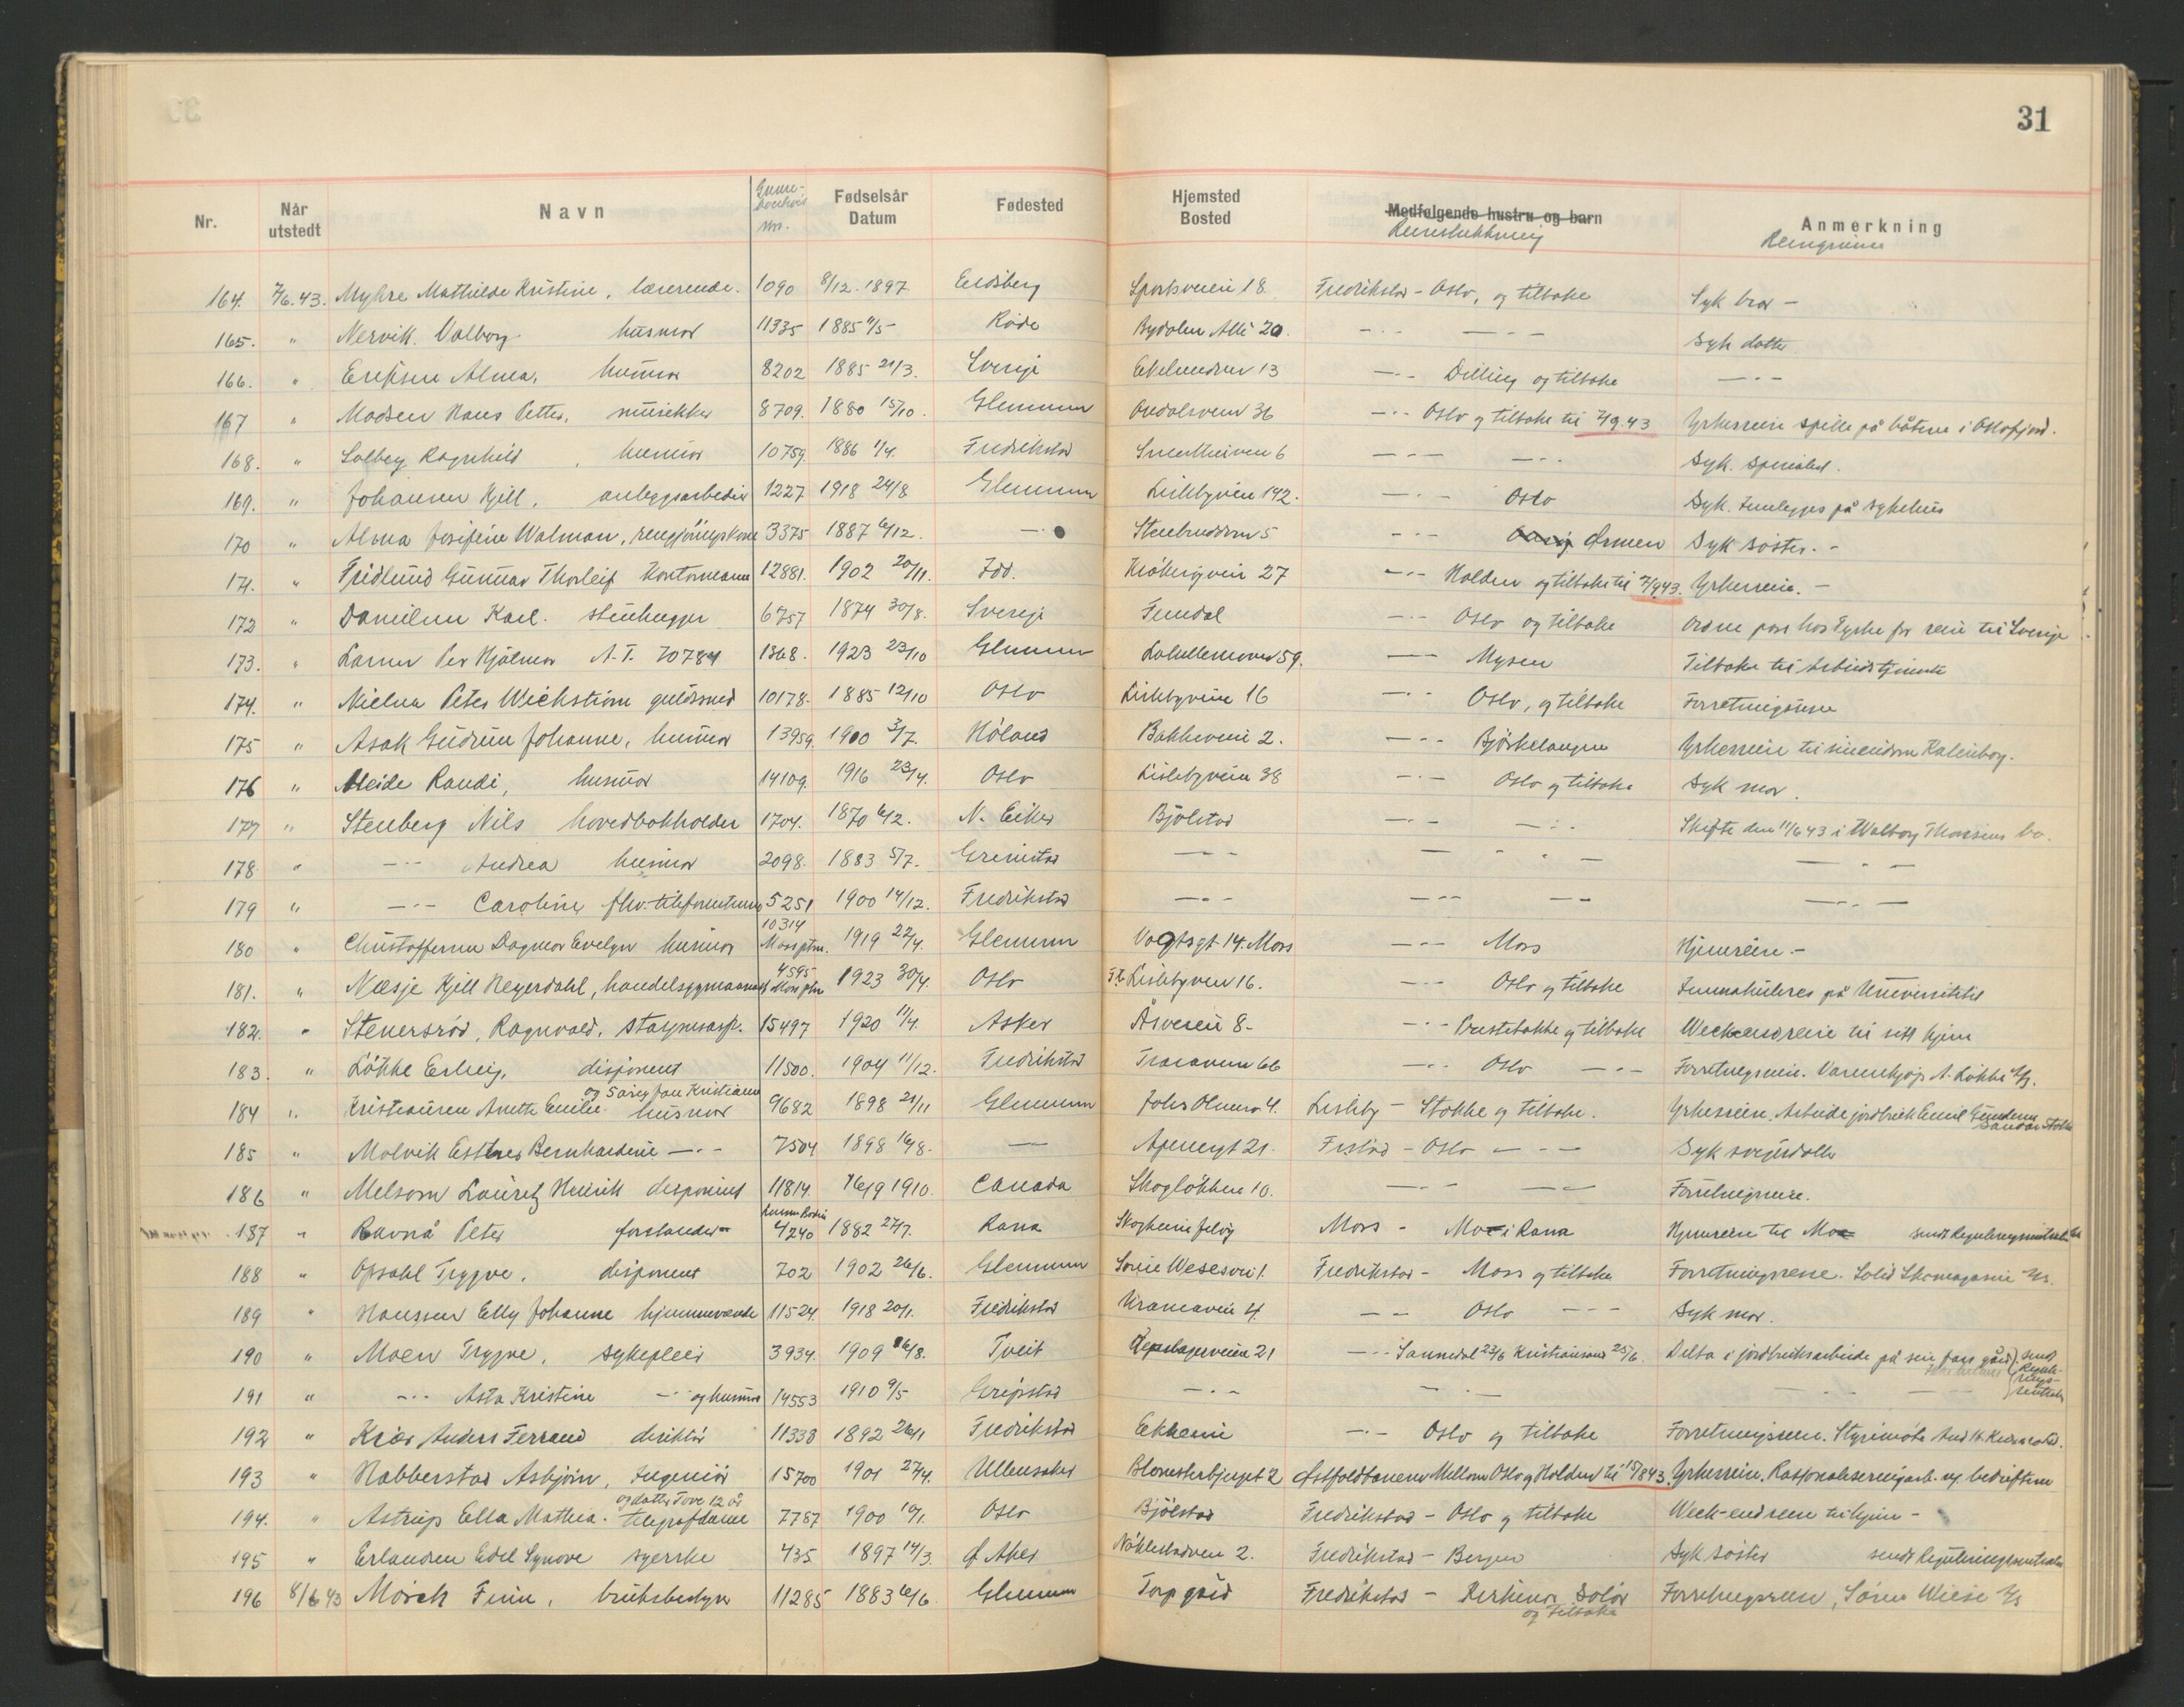 31
Nr. Når utstedt Navn Grense- nr. Fødselsår Datum Fødested Hjemsted Bosted Medfølgende hustru og barn Reisestrekning Anmerkning
164. 7/6.43. Myhre Mathilde Kristine, lærerinde. 1090 8/12. 1897 Eidsberg Sportsveien 18 Fredrikstad - Oslo, og tilbake Syk bror -
165. " Nervik Valborg husmor 11335 1885 Råde Bydalen Alle 20. -"- -"- Syk datter
166. " Eriksen Alma, husmor 8202 1885 21/3. Sverige Ekelundsvn 13 -"- Dilling og tilbake -"-
167 " Madsen Hans Petter, musikker 8709. 1880 15/10. Glemmen Ondalsveien 36 -"- Oslo og tilbake til 7/9.43 Yrkesreise spille på båtene i Oslofjord.
168. " Solberg Ragnhild, husmor 10759. 1886 1/4. Fredrikstad 6 -"- -"- Syk. spesialist.
169. " Johansen Kjell, anleggsarbeider 1227 1918 24/8 Glemmen Lislebyveien 142. -"- Oslo Syk. Innlegges på sykehus
170 " Alma Josefine Walman, rengjøringskone 3375 1887 6/12. -"- Stenbruddsvn 5 -"- Ørmen Syk søster. -
171. " Fridlund Gunnar Thorleif Kontormann 12881. 1902 20/11. Idd. Kråkerøyveien 27 -"- Halden og tilbake til 7/9.43. Yrkesreise. -
172 " Danielsen Karl. stenhugger 6757 1874 30/8. Sverige Femdal -"- Oslo og tilbake Ordne pass hos Tyske for reise til Sverige
173. " Larsen Per Hjalmar A.T. 70784 1368. 1923 23/10 Glemmen 59. -"- Mysen Tilbake til Arbeidstjeneste
174. " Nielsen Peter Wickstrøm gullsmed 10178. 1885 12/10 Oslo Lislebyveien 16 -"- Oslo, og tilbake Forretningsreise
175 " Asak Gudrun Johanne, husmor 13959. 1900 3/7. Høland Bakkeveien 2. -"- Bjørkelangen Yrkesreise til eiendom
176 " Heide Randi, husmor 14109. 1916 23/4. Oslo Lislebyveien 38 -"- Oslo og tilbake Syk mor.
177 " Stenberg Nils hovedbokholder 1704. 1870 6/12. N. Eiker Bjølstad -"- -"- Skifte den 11/6 43 i Walborg Thorsens bo.
178 " -"- Andrea husmor 2098. 1883 5/7. Grimstad -"- -"- -"-
179 " -"- Caroline fhv. 5251 1900 14/12. Fredrikstad -"- -"- -"- -"-
180 " Christoffersen Dagmar Evelyn husmor 10314 Moss ptm. 1919 22/4. Glemmen Vogtsgt 14. Moss -"- Moss Hjemreise. -
181. " Næsje Kjell Regerdahl, handelsgymnasiast 4595 Moss ptm 1923 30/4. Oslo Lislebyveien 16. -"- Oslo og tilbake Immatrikuleres på Universitetet
182. " Stenersrød, Ragnvald, stasjonsasp. 15497 1920 11/4. Asker Åsveien 8- -"- Prestebakke og tilbake Weekendreise til sitt hjem
183. " Løkke Erling, disponent 11500. 1904 11/12. Fredrikstad Traraveien 66 -"- Oslo -"- Forretningsreise. Vareinnkjøp A. Løkke A/S.
184 " Kristiansen Anette Emilie. husmor og 5 årig Jan Kristiansen 9682 1898 21/11 Glemmen Johs Olsensv. 4. Lisleby - Stokke og tilbake. Yrkesreise. Arbeide jordbruk Emil Gundersen Stokke
185 " Molvik Esther Bernhardine -"- 7504 1898 16/8. -"- Apenesgt 21. Fr.stad - Oslo -"- Syk svigerdatter
186 " Melsom Lauritz Henrik disponent 11814. 16/9 1910. Canada Skogløkken 10. -"- -"- Forretningsreise.
187 " Ravnå Peter forstander 4240 1882 27/7. Rana Moss - Mo i Rana Hjemreise til Mo sendt Reguleringssentralen
188 " Opsahl Trygve, disponent 702 1902 26/6. Glemmen Søren Wesesvei 1. Fredrikstad - Moss og tilbake Forretningsreise. Solid Skomagasin A/S.
189 " Hanssen Elly Johanne hjemmeværende 11524. 1918 20/1. Fredrikstad Kramaveien 4. -"- Oslo -"- Syk mor.
190 " Moen Trygve, sykepleier 3934. 1909 16/8. Tveit 21 -"- Sannidal 23/6 Kristiansand 25/6. Delta i jordbruksarbeide på sin fars gård sendt Regule- rings- sentralen
191 " -"- Asta Kristine -"- og husmor 14553 1910 9/5 Gripstad -"- -"- -"- -"-
192 " Kiær Anders Ferrand direktør 11338 1892 26/1 Fredrikstad Ekheim -"- Oslo og tilbake Forretningsreise. Styremøte And. H. Kiær & Co. Ltd.
193 " Nabberstad Asbjørn, Ingeniør 15700 1901 27/4. Ullensaker Blomsterbjerget 2 Østfoldbanen Mellom Oslo og Halden til 15/8 43. Yrkesreise. Rasjonaliseringsarb. ved bedriftene
194. " Astrup Ella Mathea. telegrafdame og datter Tove 12 år 7787 1900 10/1. Oslo Bjølstad Fredrikstad - Oslo og tilbake Week-endreise til hjem -
195 " Erlandsen Edel Synøve syerske 435 1897 14/3. Ø Aker 2. Fredrikstad - Bergen Syk søster sendt Reguleringssentralen
196 8/6 43 Mørch Finn, bruksbestyrer 11285 1883 6/6. Glemmen Torp gård Fredrikstad - Kirkenær Solør og tilbake Forretningsreise, Søren Wiese A/S